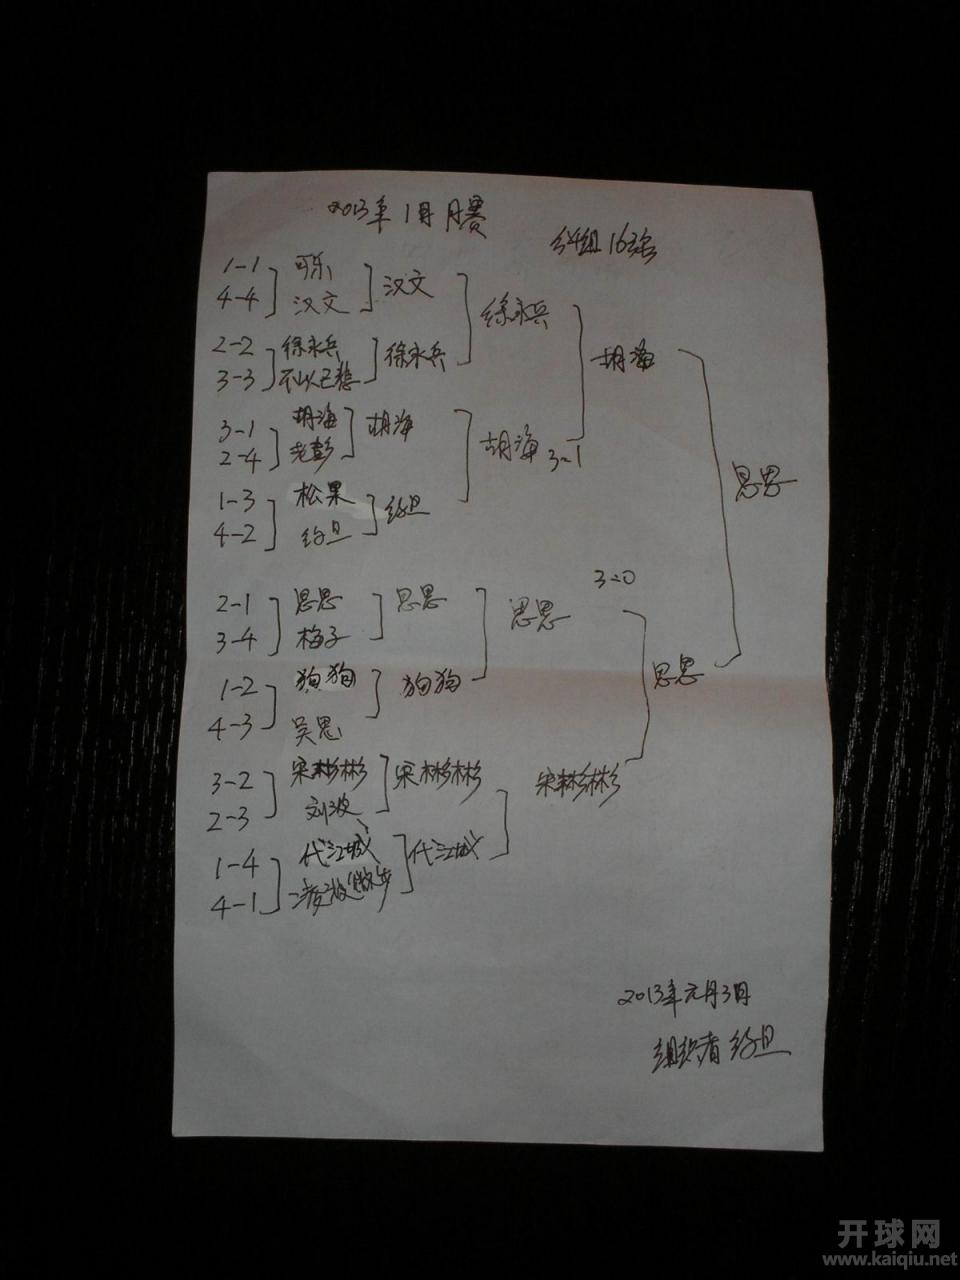 2013年1月月赛
分4组16强
1-1 可乐
汉文
4-4 汉文
徐永兵
2-2 徐永兵
徐永兵
胡海
3-3 不以己悲
3-1 胡海
胡海
2-4 老彭
胡海 3=1
思思
1-3 松果
约旦
4-2 约旦
3=0
2-1 思思
思思
思思
3-4 梅子
思思
1-2 狗狗
狗狗
4-3 吴思
3-2 宋彬彬
宋彬彬
宋彬彬
2-3 刘波
1-4 代江城
代江城
4-1
2013年元月3日
组织者 约旦
开球网
www.kaiqiu.net